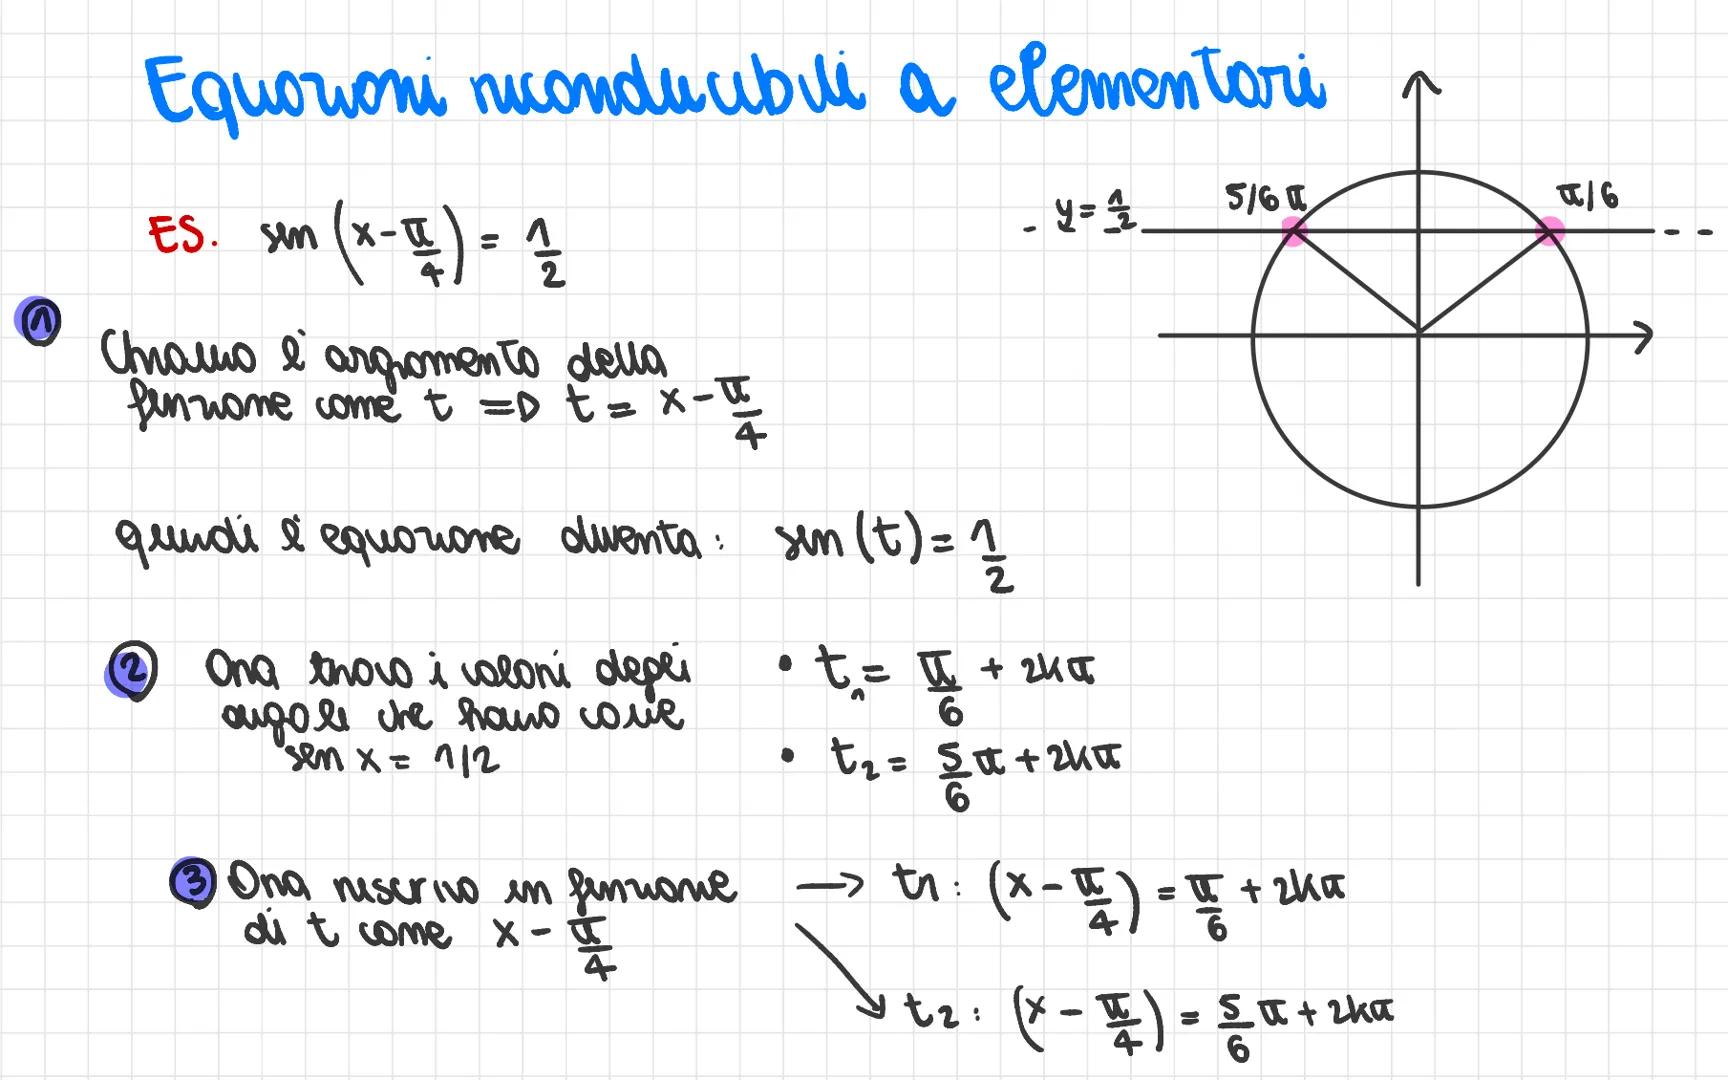 Equazioni riconducibili a elementari
ES. sen (x - π/4) = 1/2
y = 1/2
5/6 π
π/6
1
Chiamo l'argomento della
funzione come t => t = x - π/4
quindi l'equazione diventa: sen (t) = 1/2
2 Ora trovo i valori degli
angoli che hanno come
sen x = 1/2
• t₁ = π/6 + 2kπ
• t₂ = 5/6 π + 2kπ
3 Ora riscrivo in funzione
di t come x - π/4
→ t1: (x - π/4) = π/6 + 2kπ
↘ t2: (x - π/4) = 5/6 π + 2kπ